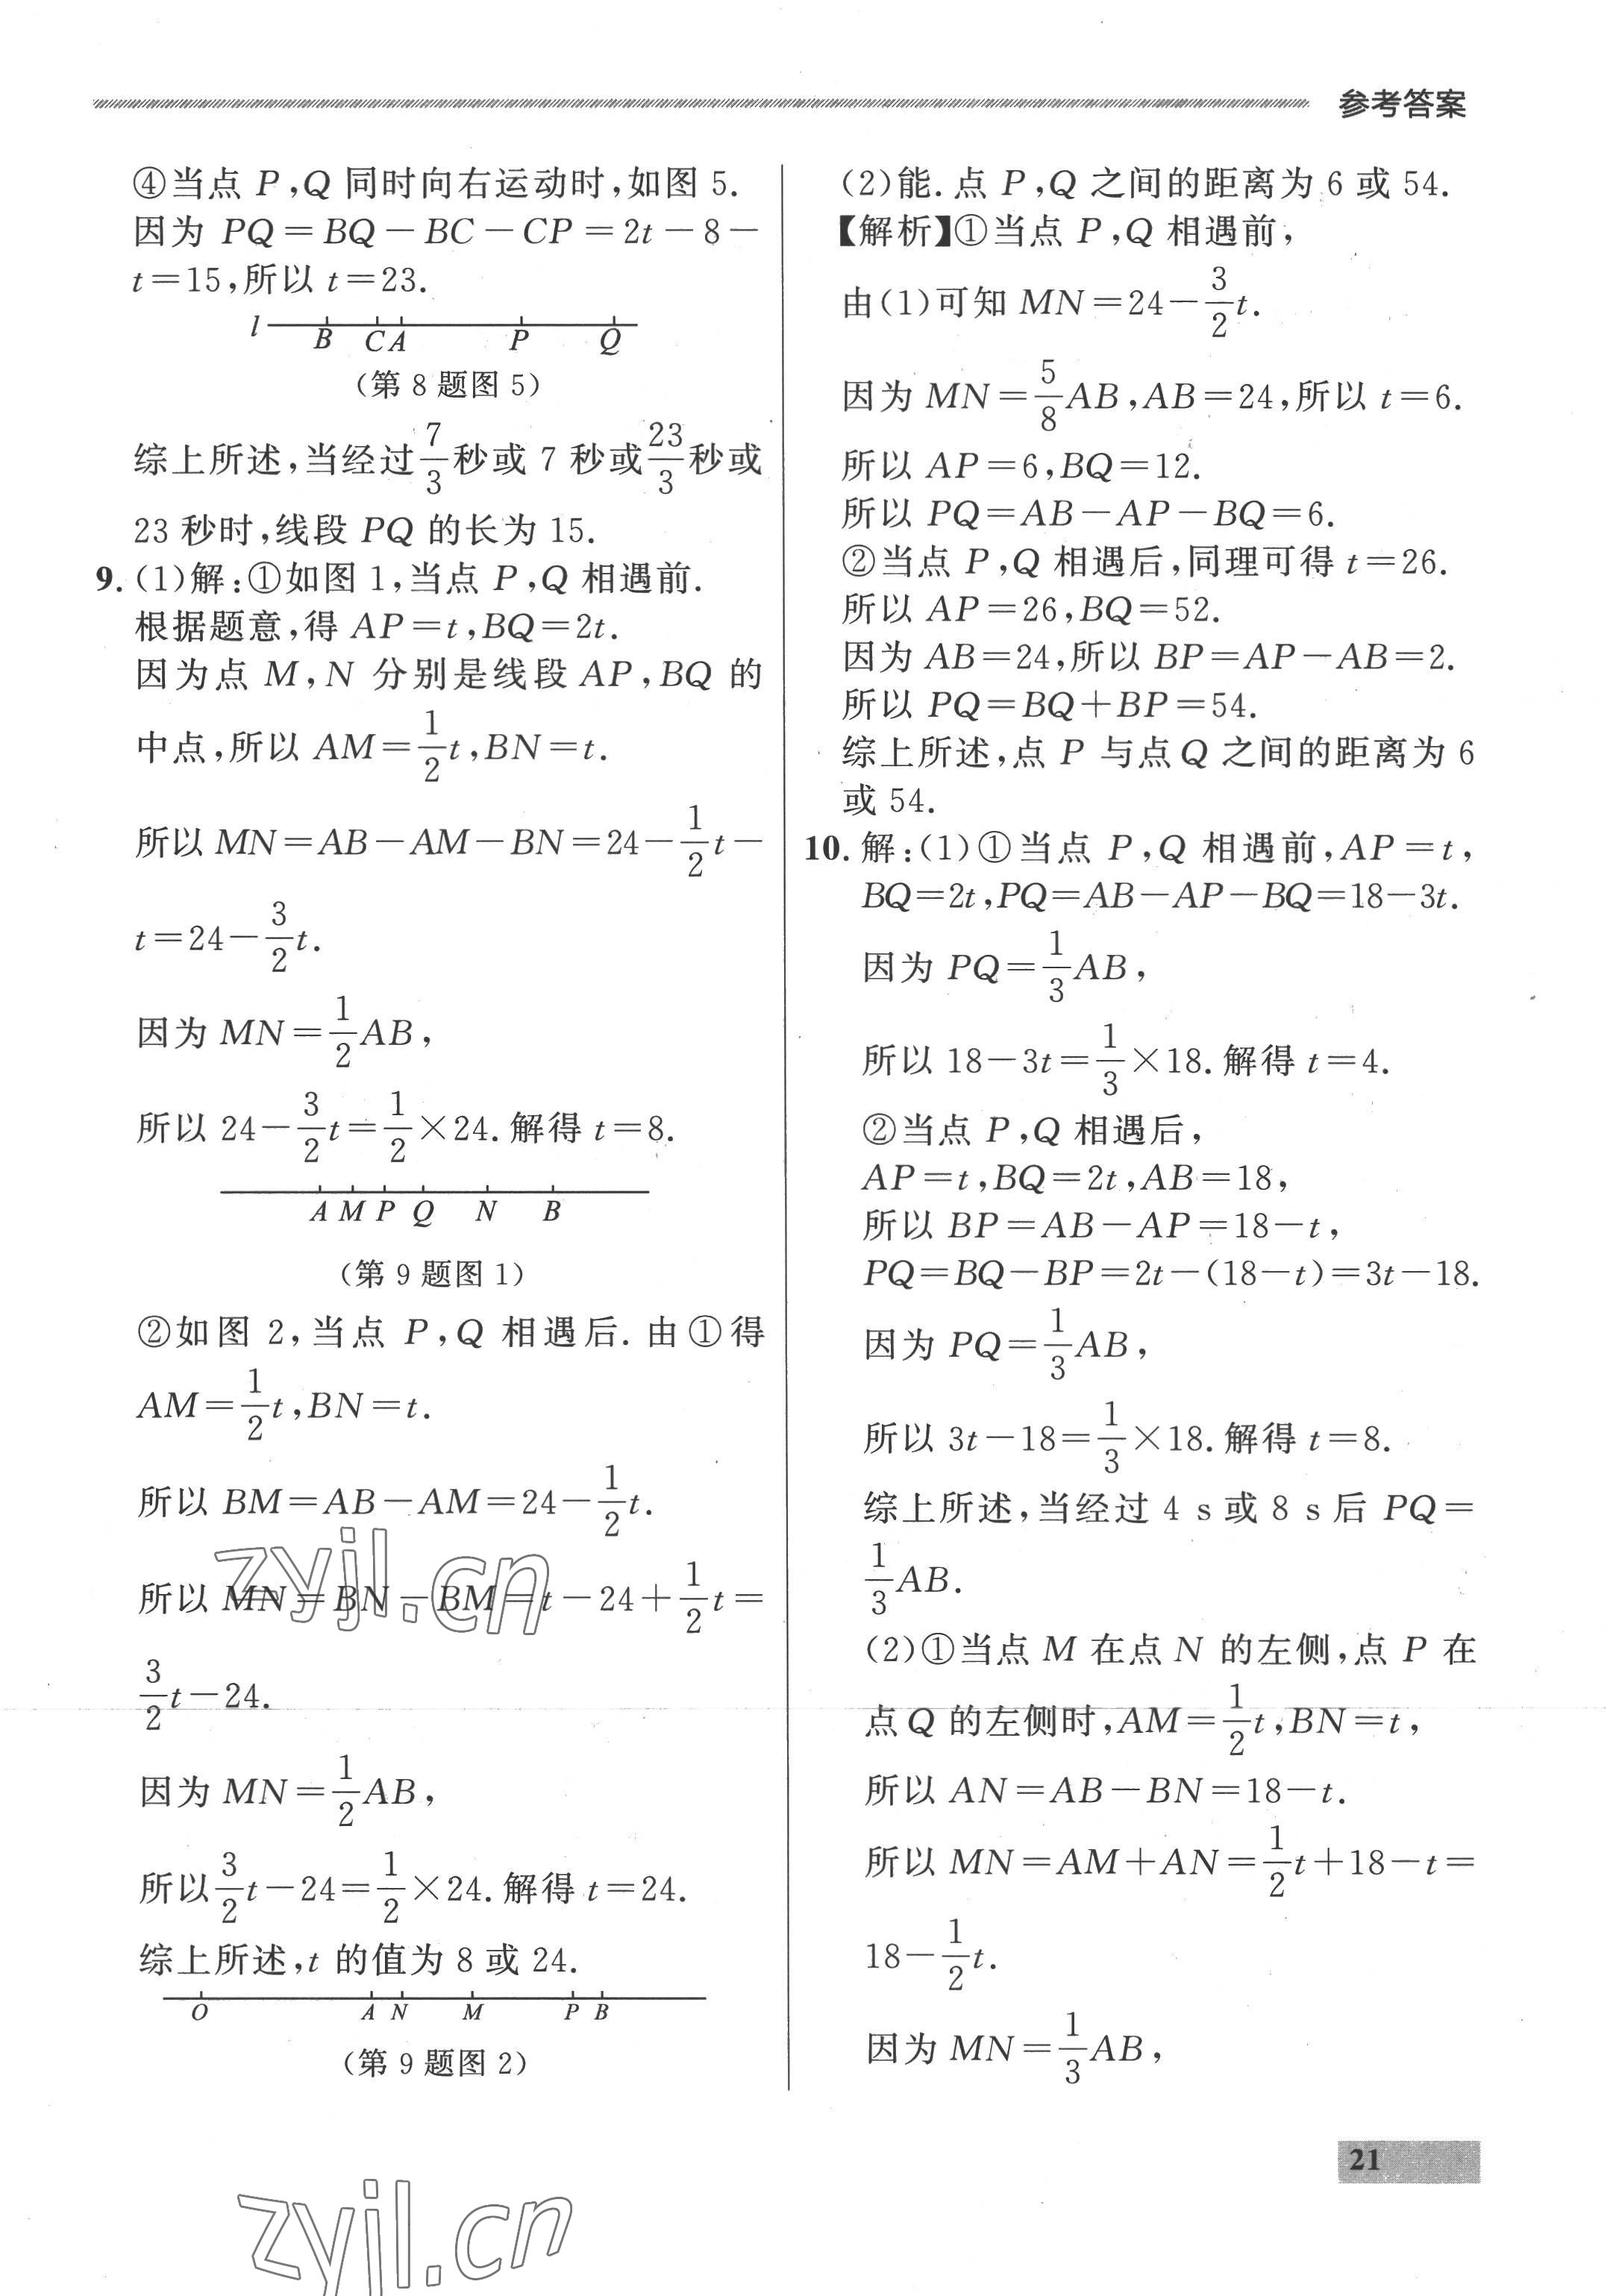 参考答案
④当点 P,Q 同时向右运动时,如图 5.
因为 PQ=BQ-BC-CP=2t-8-
t=15,所以 t=23.
l B C A P Q
(第 8 题图 5)
综上所述,当经过7/3秒或 7 秒或23/3秒或
23 秒时,线段 PQ 的长为 15.
9. (1)解:①如图 1,当点 P,Q 相遇前.
根据题意,得 AP=t,BQ=2t.
因为点 M,N 分别是线段 AP,BQ 的
中点,所以 AM=1/2t,BN=t.
所以 MN=AB-AM-BN=24-1/2t-
t=24-3/2t.
因为 MN=1/2AB,
所以 24-3/2t=1/2×24. 解得 t=8.
A M P Q N B
(第 9 题图 1)
②如图 2,当点 P,Q 相遇后. 由①得
AM=1/2t,BN=t.
所以 BM=AB-AM=24-1/2t.
所以 MN=BN-BM=t-24+1/2t=
3/2t-24.
因为 MN=1/2AB,
所以3/2t-24=1/2×24. 解得 t=24.
综上所述,t 的值为 8 或 24.
O A N M P B
(第 9 题图 2)
(2)能. 点 P,Q 之间的距离为 6 或 54.
【解析】①当点 P,Q 相遇前,
由(1)可知 MN=24-3/2t.
因为 MN=5/8AB,AB=24,所以 t=6.
所以 AP=6,BQ=12.
所以 PQ=AB-AP-BQ=6.
②当点 P,Q 相遇后,同理可得 t=26.
所以 AP=26,BQ=52.
因为 AB=24,所以 BP=AP-AB=2.
所以 PQ=BQ+BP=54.
综上所述,点 P 与点 Q 之间的距离为 6
或 54.
10. 解:(1)①当点 P,Q 相遇前,AP=t,
BQ=2t,PQ=AB-AP-BQ=18-3t.
因为 PQ=1/3AB,
所以 18-3t=1/3×18. 解得 t=4.
②当点 P,Q 相遇后,
AP=t,BQ=2t,AB=18,
所以 BP=AB-AP=18-t,
PQ=BQ-BP=2t-(18-t)=3t-18.
因为 PQ=1/3AB,
所以 3t-18=1/3×18. 解得 t=8.
综上所述,当经过 4 s 或 8 s 后 PQ=
1/3AB.
(2)①当点 M 在点 N 的左侧,点 P 在
点 Q 的左侧时,AM=1/2t,BN=t,
所以 AN=AB-BN=18-t.
所以 MN=AM+AN=1/2t+18-t=
18-1/2t.
因为 MN=1/3AB,
21
zyjl.cn
zyjl.cn